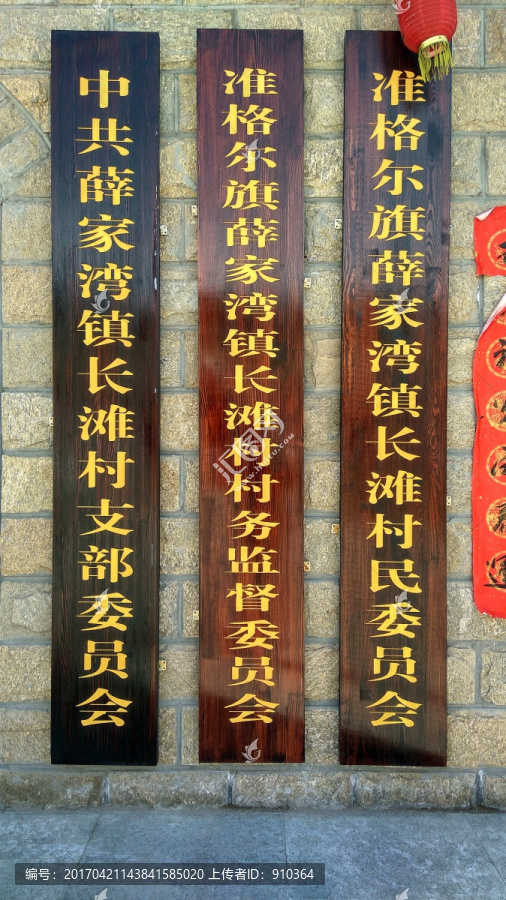 中共薛家湾镇长滩村支部委员会
准格尔旗薛家湾镇长滩村村务监督委员会
准格尔旗薛家湾镇长滩村民委员会
汇图网
编号：20170421143841585020 上传者ID：910364